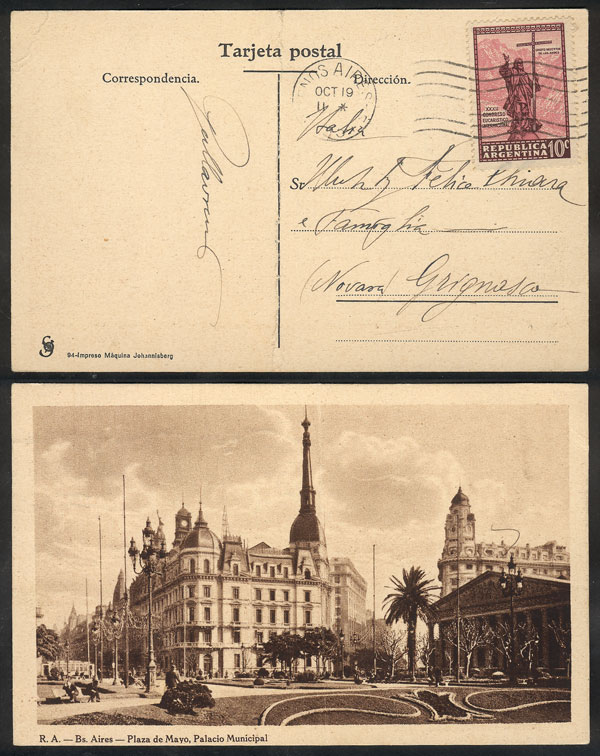 Tarjeta postal
Correspondencia.
Dirección.
BUENOS AIRES
OCT 19
11
CRISTO REDENTOR
DE LOS ANDES
XXXII
CONGRESO
EUCARISTICO
INTERNACIONAL
REPUBLICA
ARGENTINA 10c
Italia
Sr. Felice Chiara
e Famiglia
(Novara) Grignasco
94-Impreso Máquina Johannisberg
R. A. — Bs. Aires — Plaza de Mayo, Palacio Municipal